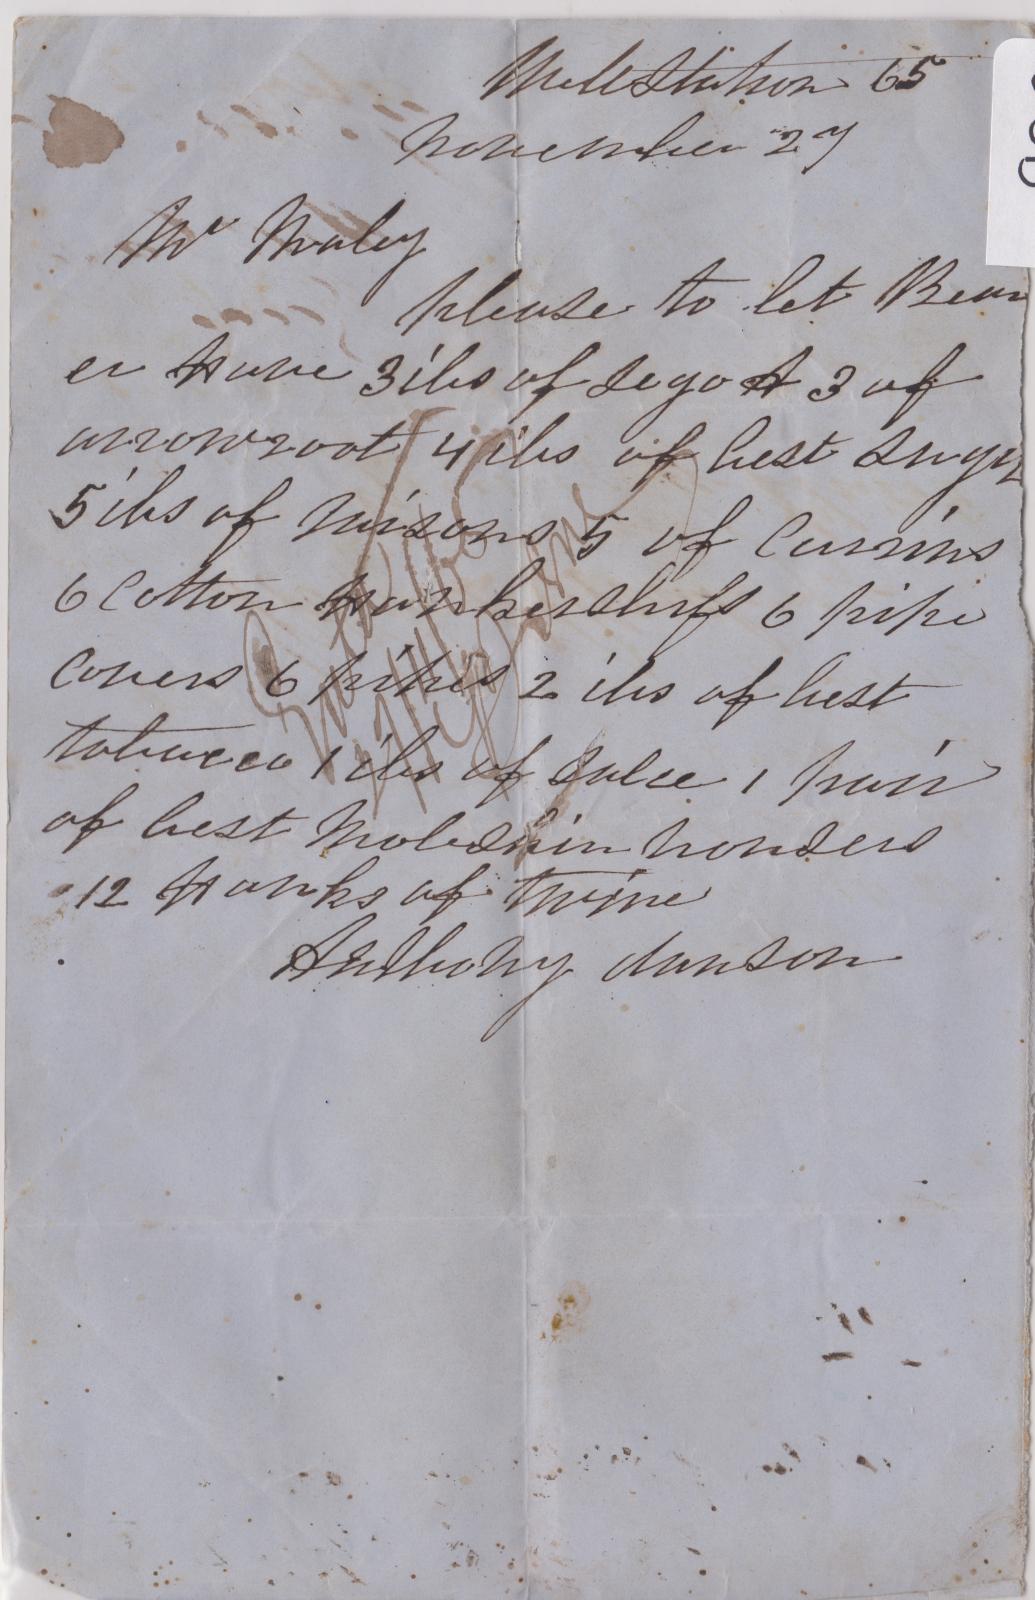 Mill Station 65
November 27
Mr Maley
please to let Bear
er Have 3 ibs of sego & 3 of
arrowroot 4 ibs of best sugar
5 ibs of raisons 5 of currins
6 Cotton Hankershifs 6 pipe
Covers 6 pipes 2 ibs of best
tobacco 1 ibs of
1 pair
of best Moleskin trousers
12 Hanks of twine
Anthony dawson
Entd